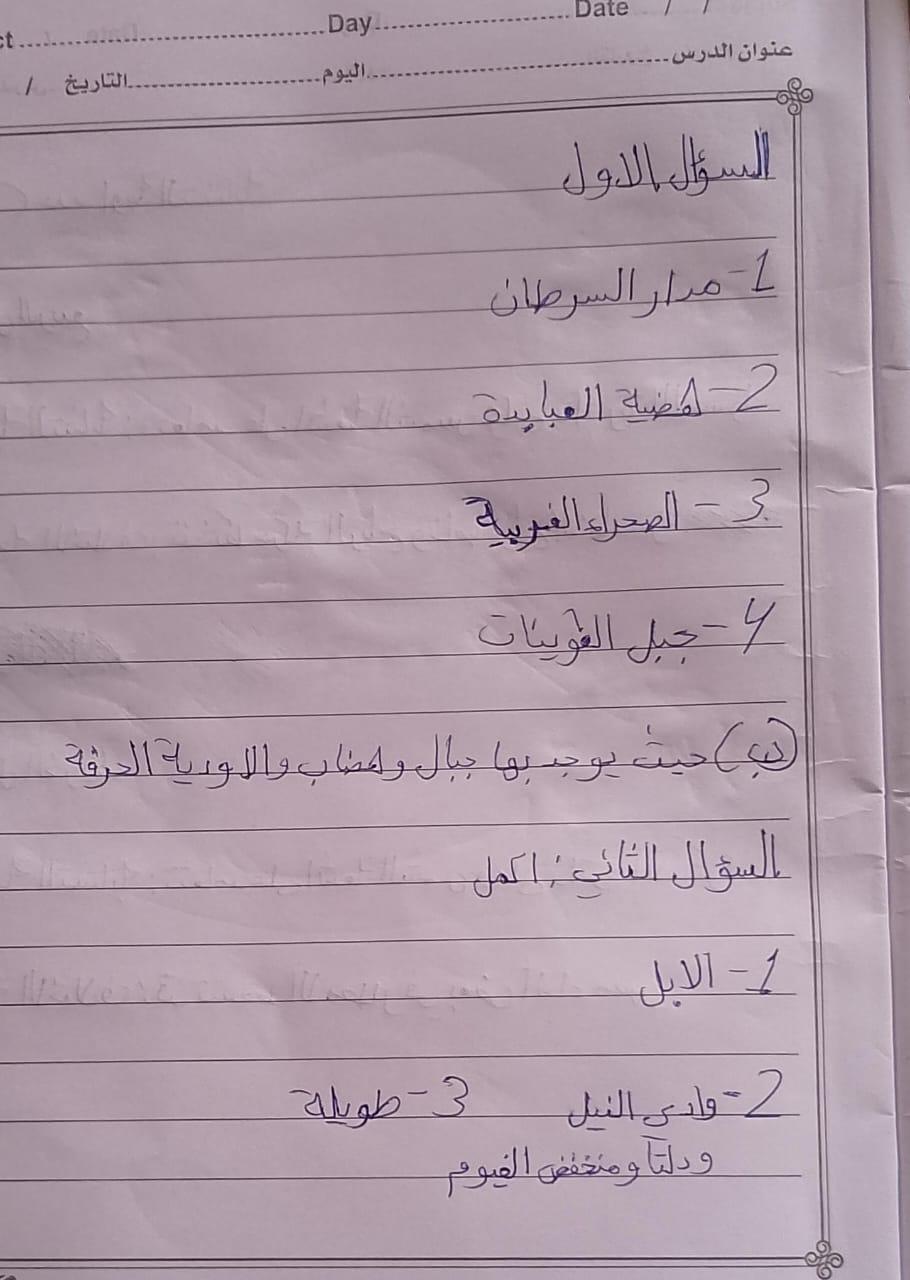 ct ........ Day ........ Date / /
عنوان الدرس ........ اليوم ........ التاريخ /
السؤال الاول
1- مدار السرطان
2- هضبة العبابدة
3- الصحراء الغربية
4- جبل العوينات
(ب) حيث يوجد بها جبال وهضاب والاودية
السؤال الثاني: اكمل
1- الابل
2- وادى النيل 3- طويلة
ودلتا ومنخفض الفيوم